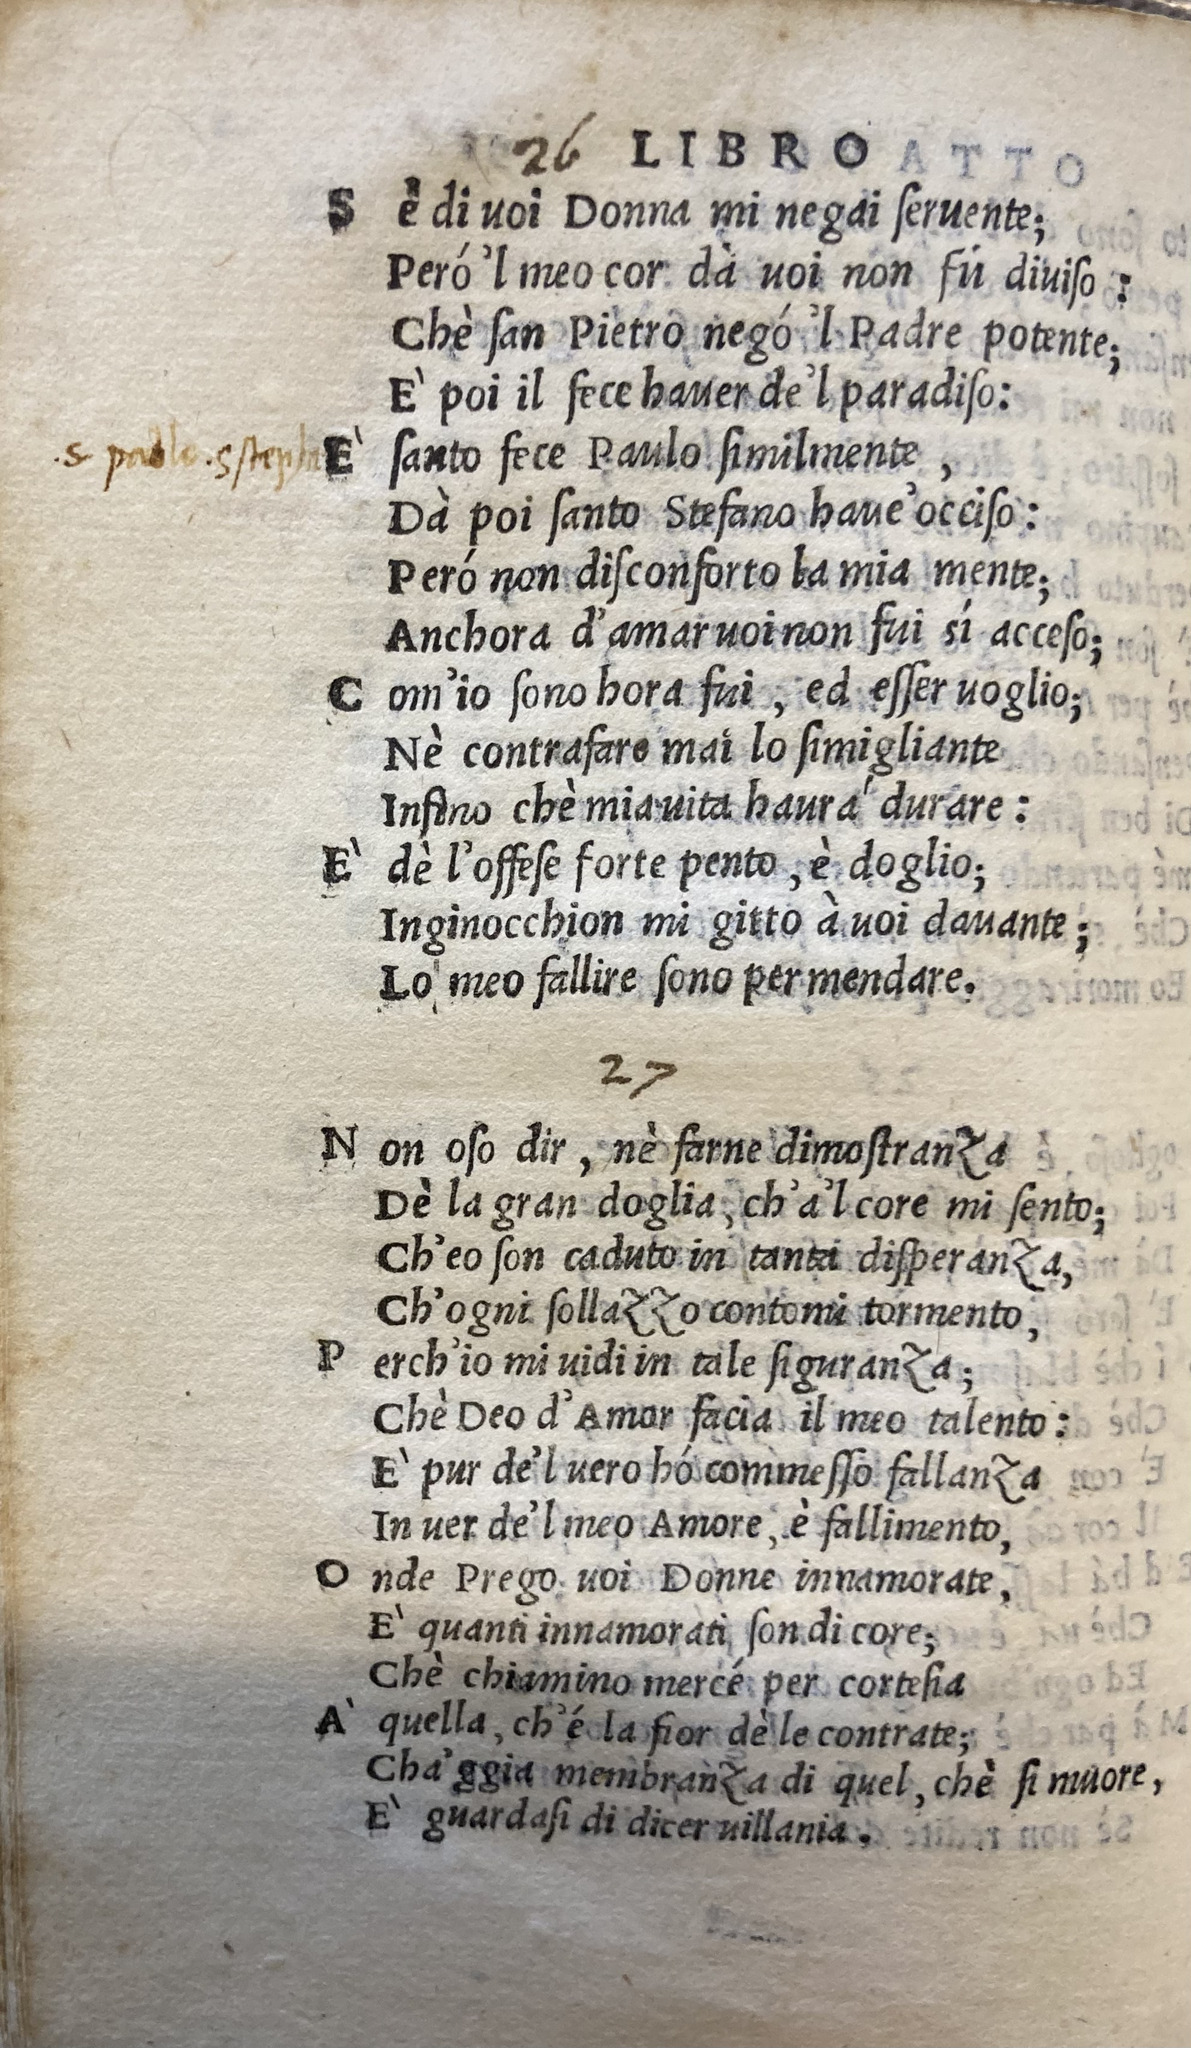 26 LIBRO
Sè di uoi Donna mi negai ſeruente;
Peró 'l meo cor dà uoi non fú diuiſo:
Chè ſan Pietro negó 'l Padre potente;
E' poi il fece hauer de'l paradiſo:
.S paolo .S stepha
E' ſanto fece Paulo ſimilmente,
Dà poi ſanto Stefano haue' occiſo:
Peró non diſconforto la mia mente;
Anchora d'amar uoi non fui sí acceſo;
Com'io ſono hora fui, ed eſſer uoglio;
Nè contrafare mai lo ſimigliante
Infino chè mia uita haurá durare:
E' dè l'offeſe forte pento, è doglio;
Inginocchion mi gitto à uoi dauante;
Lo meo fallire ſono per mendare.
27
Non oſo dir, nè farne dimoſtranza
Dè la gran doglia, ch'a'l core mi ſento;
Ch'eo ſon caduto in tanta diſperanza,
Ch'ogni ſollazzo contomi tormento,
Perch'io mi uidi in tale ſiguranza;
Chè Deo d'Amor facia il meo talento:
E' pur de'l uero hó commeſſo fallanza
In uer de'l meo Amore, è fallimento,
Onde Prego uoi Donne innamorate,
E' quanti innamorati ſon di core;
Chè chiamino mercé per corteſia
A' quella, ch'é la fior dè le contrate;
Cha'ggia membranza di quel, chè ſi muore,
E' guardaſi di dicer uillania.